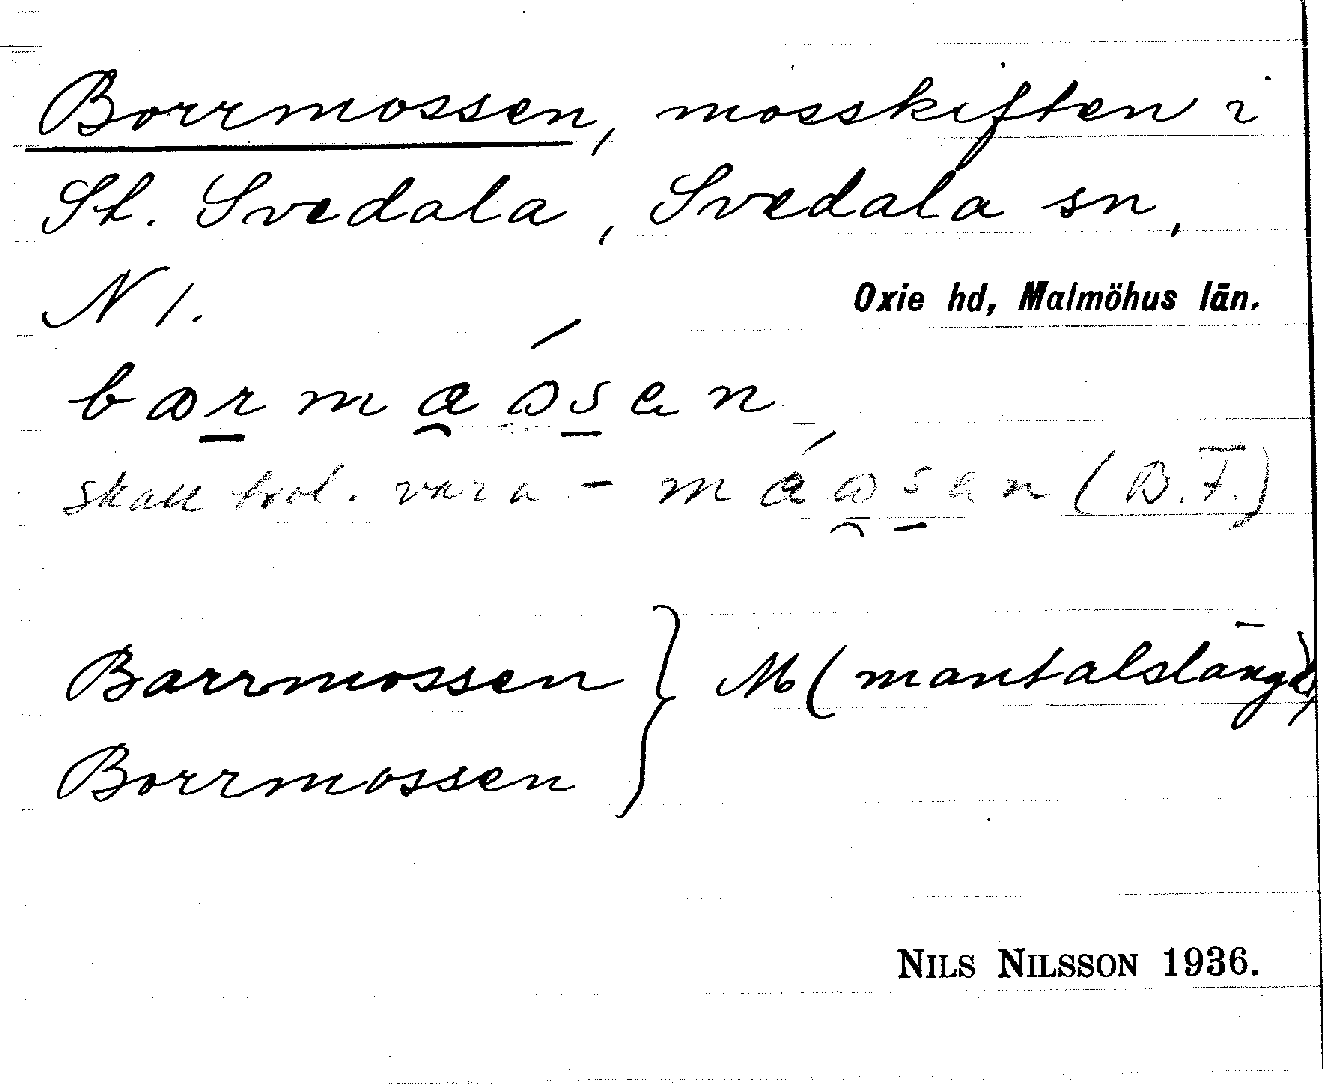 Borrmossen, mosskiften i
St. Svedala, Svedala sn,
N 1.
Oxie hd, Malmöhus län.
skall vara - (B.F.)
Barrmossen } M (mantalslängd)
Borrmossen
NILS NILSSON 1936.